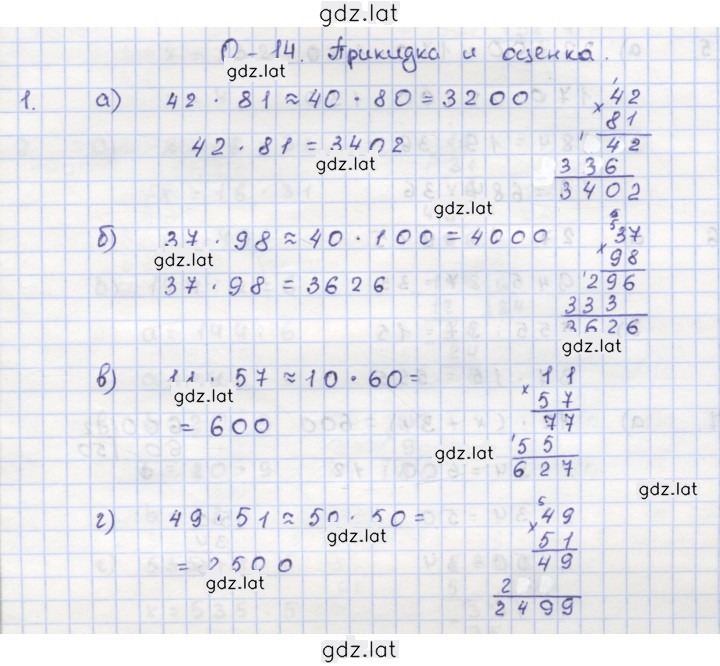 gdz.lat
П-14. Прикидка и оценка.
gdz.lat
1. а) 42 · 81 ≈ 40 · 80 = 3200
42 · 81 = 3402
gdz.lat
× 42
81
42
336
3402
gdz.lat
б) 37 · 98 ≈ 40 · 100 = 4000
gdz.lat
37 · 98 = 3626
× 37
98
296
333
3626
gdz.lat
в) 11 · 57 ≈ 10 · 60 =
gdz.lat
= 600
× 11
57
77
55
627
gdz.lat
gdz.lat
г) 49 · 51 ≈ 50 · 50 =
gdz.lat
= 2500
gdz.lat
× 49
51
49
2
2499
gdz.lat